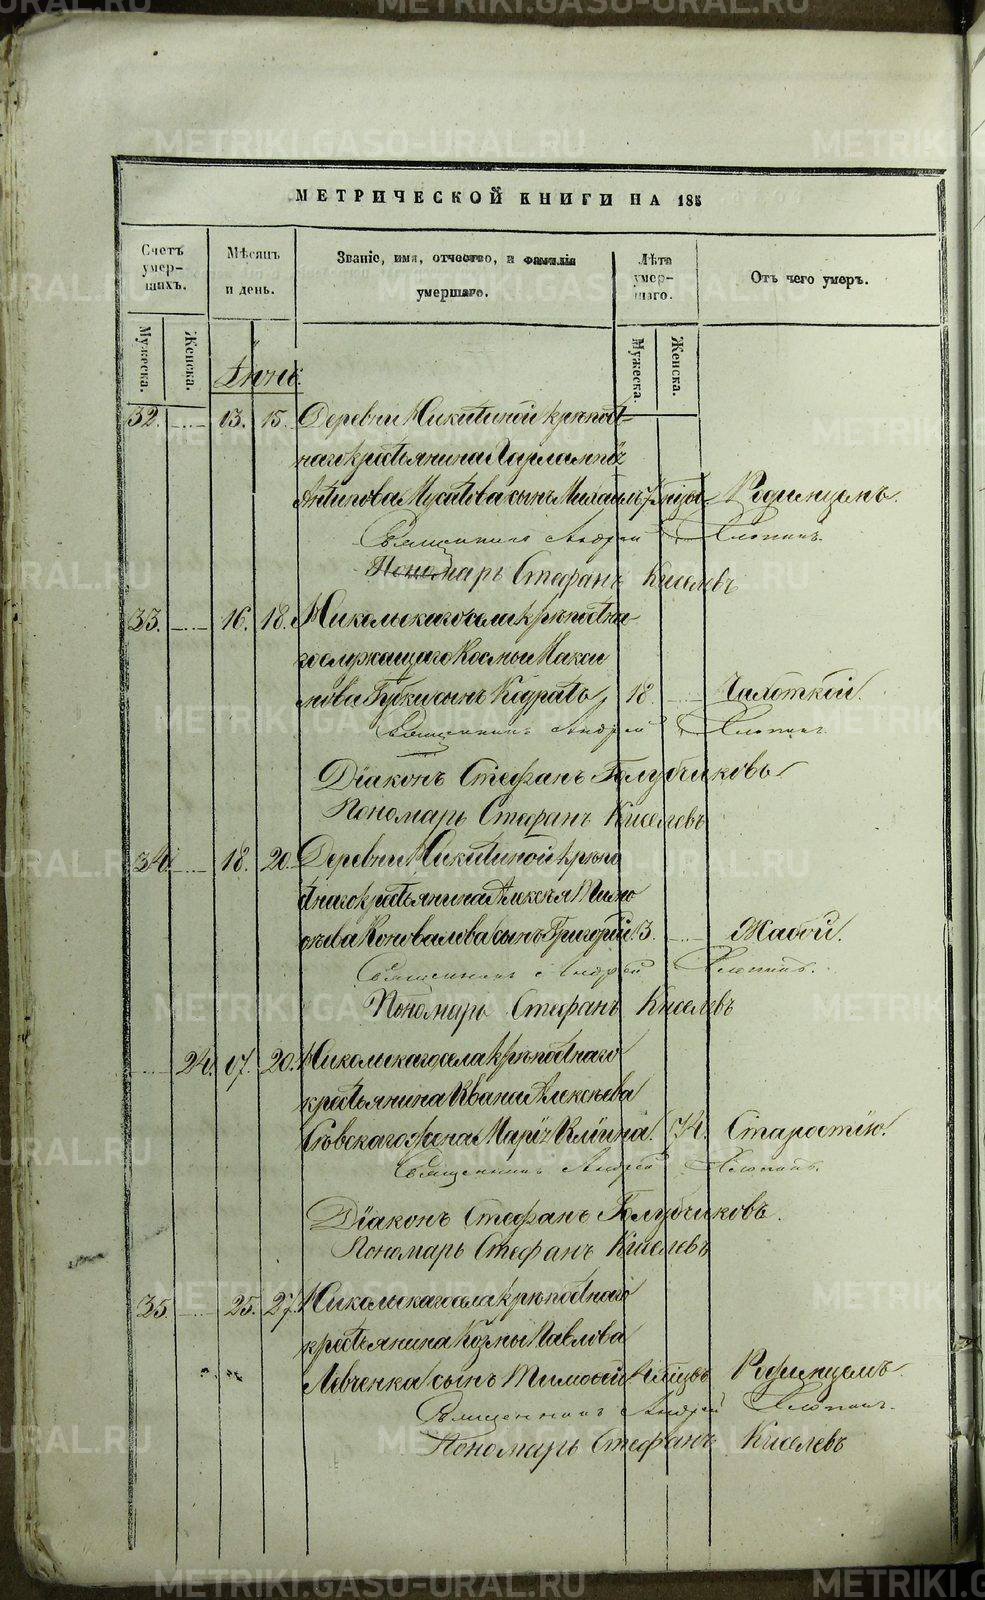 МЕТРИЧЕСКОЙ КНИГИ НА 185
Счетъ умер- шихъ.
Мѣсяцъ и день.
Званіе, имя, отчество, и фамилія умершаго.
Лѣта умер- шаго.
Отъ чего умеръ.
Мужеска.
Женска.
Мужеска.
Женска.
32. 13. 15. Деревни Никитиной крѣпост-
наго крестьянина Харлампія
Антипова Мусатова сынъ Михаилъ Родимцемъ.
Священникъ Андрей Хлопинъ.
Пономарь Стефанъ Киселевъ
33. 16. 18. Никольскаго села крѣпостна
го служащаго Космы Макси
мова сынъ 18 Чахоткой.
Священникъ Андрей Хлопинъ.
Діаконъ Стефанъ Голубчиковъ
Пономарь Стефанъ Киселевъ
34. 18. 20. Деревни Никитиной крѣпо
стнаго крестьянина Алексѣя Тимо
ѳѣева Коновалова сынъ Григорій. 3. Жабой.
Священникъ Андрей Хлопинъ.
Пономарь Стефанъ Киселевъ
24. 17. 20. Никольскаго села крѣпостнаго
крестьянина Ивана Алексѣева
жена Марія 74. Старостію.
Священникъ Андрей Хлопинъ.
Діаконъ Стефанъ Голубчиковъ.
Пономарь Стефанъ Киселевъ
35. 25. 27. Никольскаго села крѣпостнаго
крестьянина Козмы Павлова
Левченка сынъ Тимоѳей Родимцемъ.
Священникъ Андрей Хлопинъ.
Пономарь Стефанъ Киселевъ
METRIKI.GASO-URAL.RU